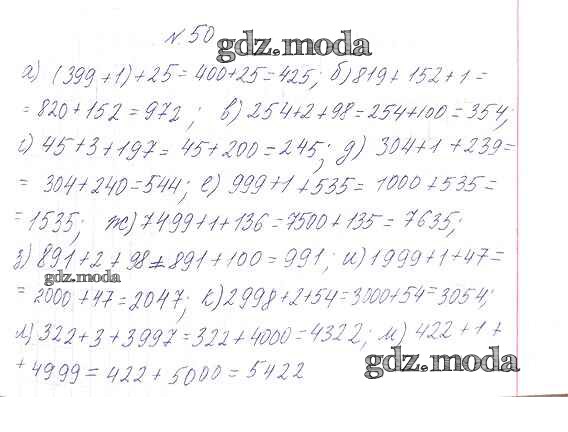 N. 50
gdz.moda
а) (399+1)+25=400+25=425; б) 819+152+1=
=820+152=972; в) 254+2+98=254+100=354;
г) 45+3+197=45+200=245; д) 304+1+239=
=304+240=544; е) 999+1+535=1000+535=
=1535; ж) 7499+1+136=7500+135=7635;
з) 891+2+98=891+100=991; и) 1999+1+47=
gdz.moda
=2000+47=2047; к) 2998+2+54=3000+54=3054;
л) 322+3+3997=322+4000=4322; м) 422+1+
gdz.moda
+4999=422+5000=5422